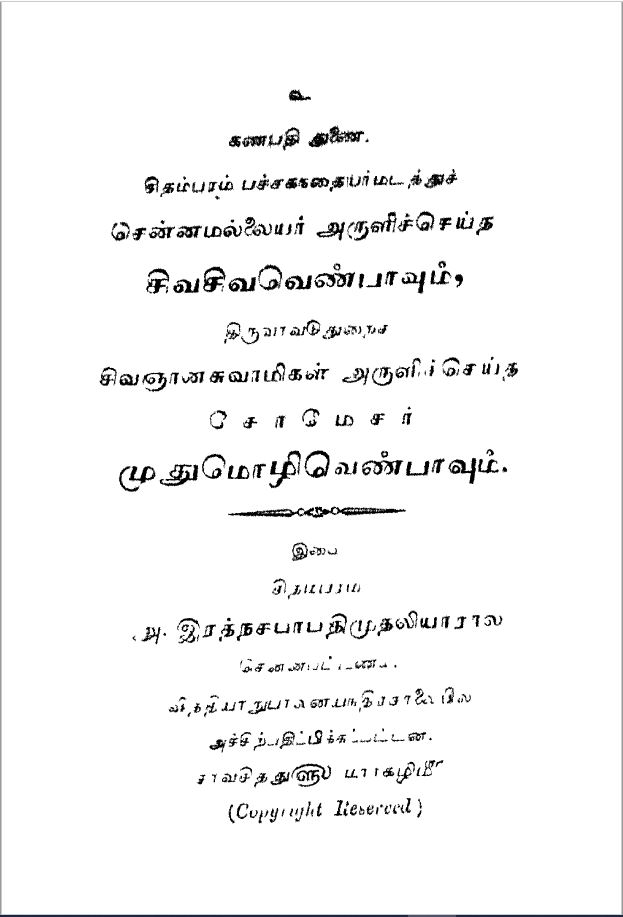 உ
கணபதி துணை.
சிதம்பரம் பச்சகந்தையர்மடத்துச்
சென்னமல்லையர் அருளிச்செய்த
சிவசிவவெண்பாவும்,
திருவாவடுதுறைச்
சிவஞானசுவாமிகள் அருளிச்செய்த
சோமேசர்
முதுமொழிவெண்பாவும்.
இவை
சிதம்பரம்
அ. இரத்நசபாபதிமுதலியாரால்
சென்னபட்டணம்.
அச்சிற்பதிப்பிக்கப்பட்டன.
மார்கழிமீ
(Copyright Reserved)